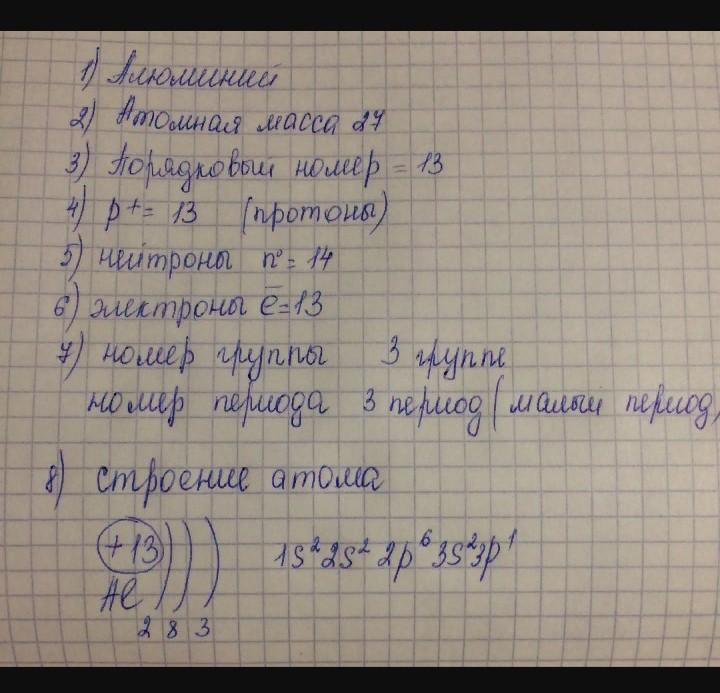 1) Алюминий
2) Атомная масса 27
3) Порядковый номер = 13
4) p⁺ = 13 (протоны)
5) нейтроны n⁰ = 14
6) электроны e̅ = 13
7) номер группы 3 группе
номер периода 3 период (малый период)
8) строение атома
+13 ) ) ) 1s² 2s² 2p⁶ 3s² 3p¹
Al
2 8 3